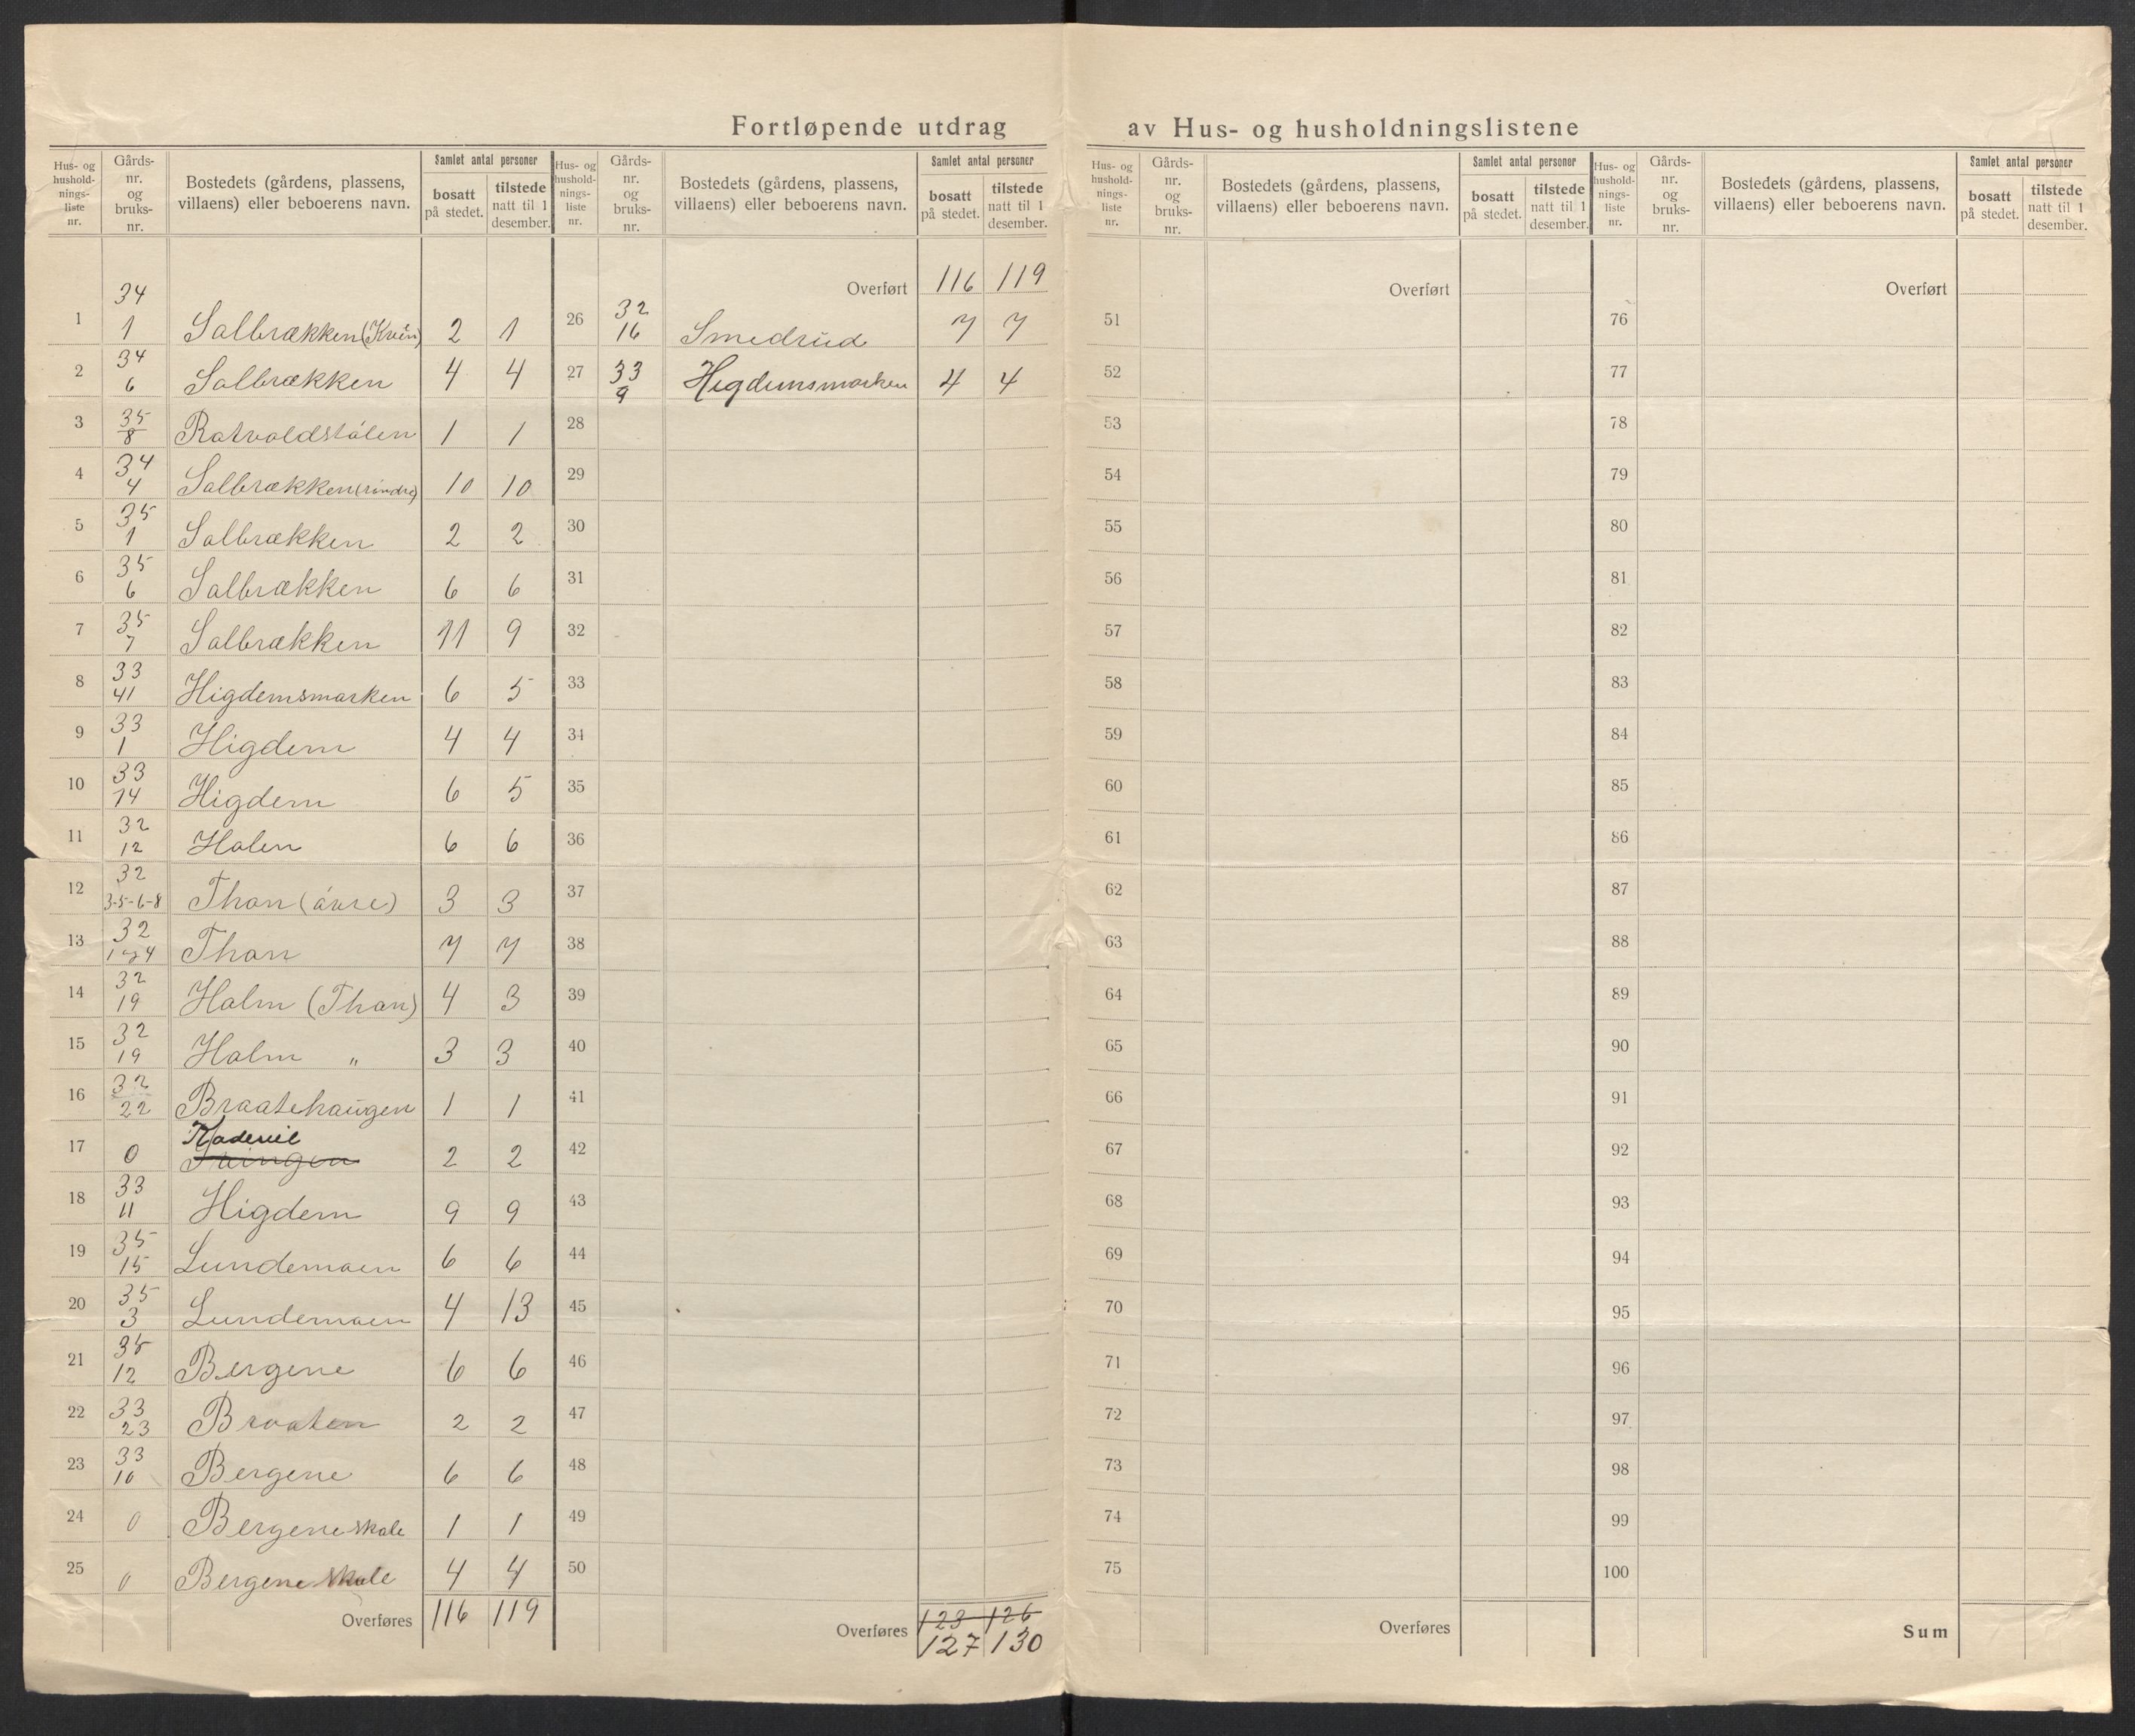 Fortløpende utdrag av Hus- og husholdningslistene
Hus- og hushold-nings-liste nr. Gårds-nr. og bruks-nr. Bostedets (gårdens, plassens, villaens) eller beboerens navn. Samlet antal personer bosatt på stedet. tilstede natt til 1 desember.
1 34 1 Solbrækken (Kvin) 2 1
2 34 6 Solbrækken 4 4
3 35 8 Ratvoldstålen 1 1
4 34 4 Solbrækken (rindre) 10 10
5 35 1 Solbrækken 2 2
6 35 6 Solbrækken 6 6
7 35 7 Solbrækken 11 9
8 33 41 Higdemsmarken 6 5
9 33 1 Higdem 4 4
10 33 14 Higdem 6 5
11 32 12 Holen 6 6
12 32 3-5-6-8 Thon (övre) 3 3
13 32 1 og 4 Thon 7 7
14 32 19 Holm (Thon) 4 3
15 32 19 Holm " 3 3
16 32 22 Braatehaugen 1 1
17 0 2 2
18 33 11 Higdem 9 9
19 35 15 Lundemoen 6 6
20 35 3 Lundemoen 4 13
21 35 12 Bergene 6 6
22 33 23 Braaten 2 2
23 33 10 Bergene 6 6
24 0 Bergene skole 1 1
25 0 Bergene skole 4 4
Overføres 116 119
Hus- og hushold-nings-liste nr. Gårds-nr. og bruks-nr. Bostedets (gårdens, plassens, villaens) eller beboerens navn. Samlet antal personer bosatt på stedet. tilstede natt til 1 desember.
Overført 116 119
26 32 16 Smedrud 7 7
27 33 9 Higdemsmarken 4 4
28
29
30
31
32
33
34
35
36
37
38
39
40
41
42
43
44
45
46
47
48
49
50
Overføres 123 126
127 130
Hus- og hushold-nings-liste nr. Gårds-nr. og bruks-nr. Bostedets (gårdens, plassens, villaens) eller beboerens navn. Samlet antal personer bosatt på stedet. tilstede natt til 1 desember.
Overført
51
52
53
54
55
56
57
58
59
60
61
62
63
64
65
66
67
68
69
70
71
72
73
74
75
Overføres
Hus- og hushold-nings-liste nr. Gårds-nr. og bruks-nr. Bostedets (gårdens, plassens, villaens) eller beboerens navn. Samlet antal personer bosatt på stedet. tilstede natt til 1 desember.
Overført
76
77
78
79
80
81
82
83
84
85
86
87
88
89
90
91
92
93
94
95
96
97
98
99
100
Sum